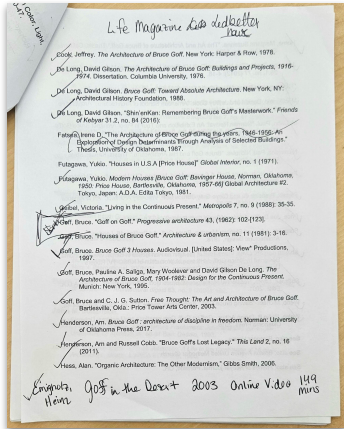 Color, Light,
-47.
Life Magazine Ledbetter
Cook, Jeffrey. The Architecture of Bruce Goff. New York: Harper & Row, 1978.
De Long, David Gilson. The Architecture of Bruce Goff: Buildings and Projects, 1916-
1974. Dissertation. Columbia University, 1976.
De Long, David Gilson. Bruce Goff: Toward Absolute Architecture. New York, NY:
Architectural History Foundation, 1988.
De Long, David Gilson. "Shin'enKan: Remembering Bruce Goff's Masterwork." Friends
of Kebyar 31.2, no. 84 (2016):
Irene D. "The Architecture of Bruce Goff during the years, 1946-1956: An
Exploration of Design Determinants Through Analysis of Selected Buildings."
Thesis, University of Oklahoma, 1987.
Futagawa, Yukio. "Houses in U.S.A [Price House]" Global Interior, no. 1 (1971).
Futagawa, Yukio. Modern Houses Bruce Goff: Bavinger House, Norman, Oklahoma,
1950: Price House, Bartlesville, Oklahoma, 1957-66] Global Architecture #2.
Tokyo, Japan: A.D.A. Edita Tokyo, 1981.
Geibel, Victoria. "Living in the Continuous Present." Metropolis 7, no. 9 (1988): 35-35.
Goff, Bruce. "Goff on Goff." Progressive architecture 43, (1962): 102-[123].
Goff, Bruce. "Houses of Bruce Goff." Architecture & urbanism, no. 11 (1981): 3-16.
Goff, Bruce. Bruce Goff 3 Houses. Audiovisual. [United States]: View" Productions,
1997.
Goff, Bruce, Pauline A. Saliga, Mary Woolever and David Gilson De Long. The
Architecture of Bruce Goff, 1904-1982: Design for the Continuous Present,
Munich: New York, 1995.
Goff, Bruce and C. J. G. Sutton. Free Thought: The Art and Architecture of Bruce Goff.
Bartlesville, Okla.: Price Tower Arts Center, 2003.
Henderson, Arn. Bruce Goff : architecture of discipline in freedom. Norman: University
of Oklahoma Press, 2017.
Henderson, Arn and Russell Cobb. "Bruce Goff's Lost Legacy." This Land 2, no. 16
(2011).
Hess, Alan. "Organic Architecture: The Other Modernism," Gibbs Smith, 2006.
Emigholz, Goff in the Desert 2003 Online Video 149
Heinz mins